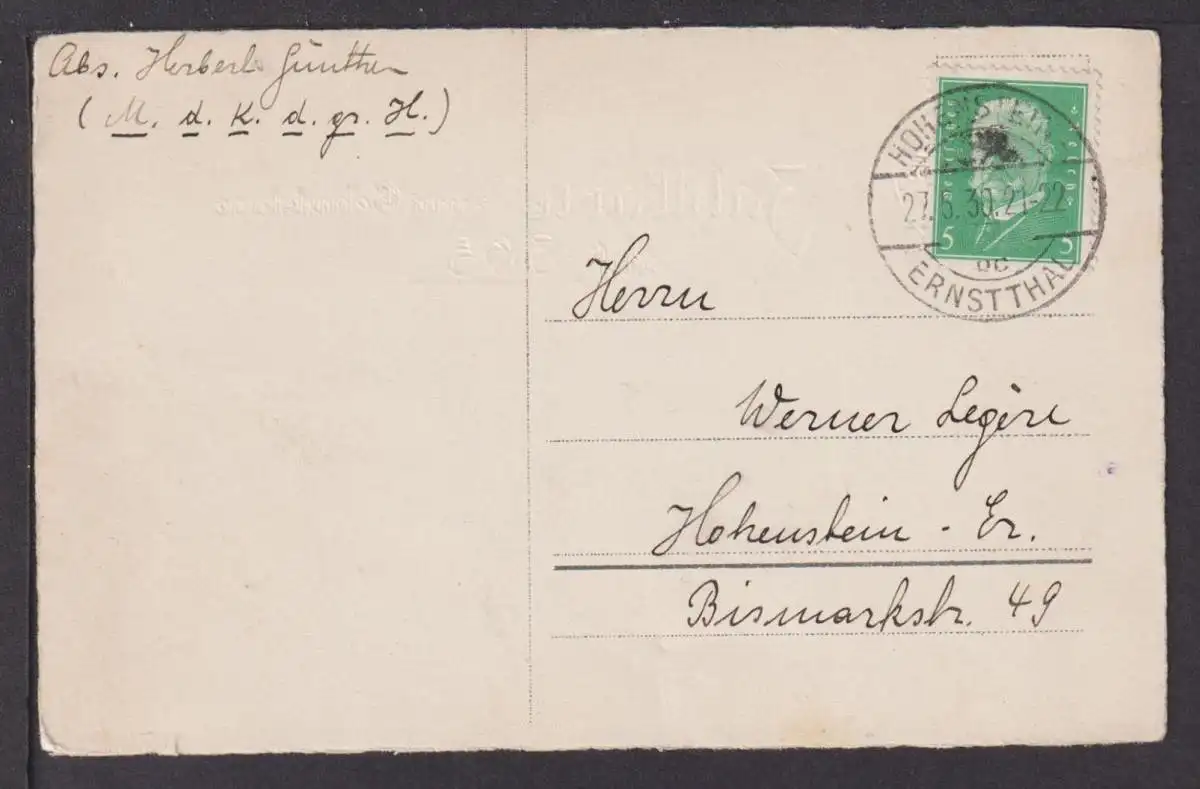 Abs. Herbert Günther
(M. d. K. d. gr. H.)
HOHENSTEIN
27.6.30.21-22
ERNSTTHAL
5 5
Herrn
Werner Legère
Hohenstein - Er.
Bismarkstr. 49